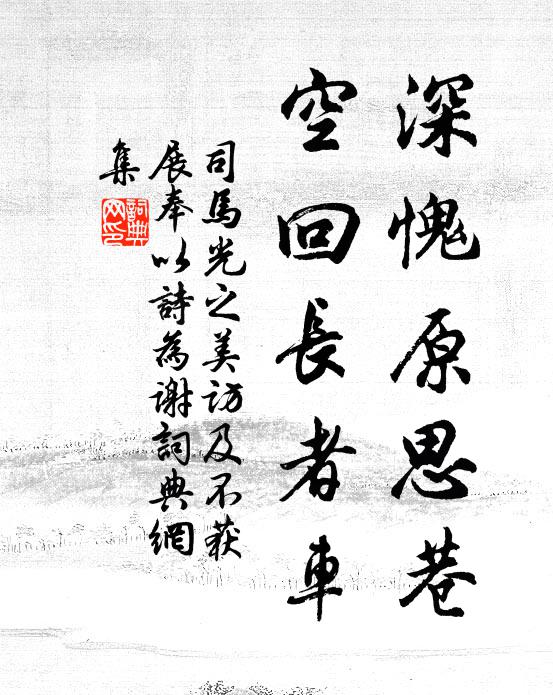 深愧原思巷
空回長者車
司馬光之美訪及不获
展奉以詩為謝詞典網
集
詞典
网印